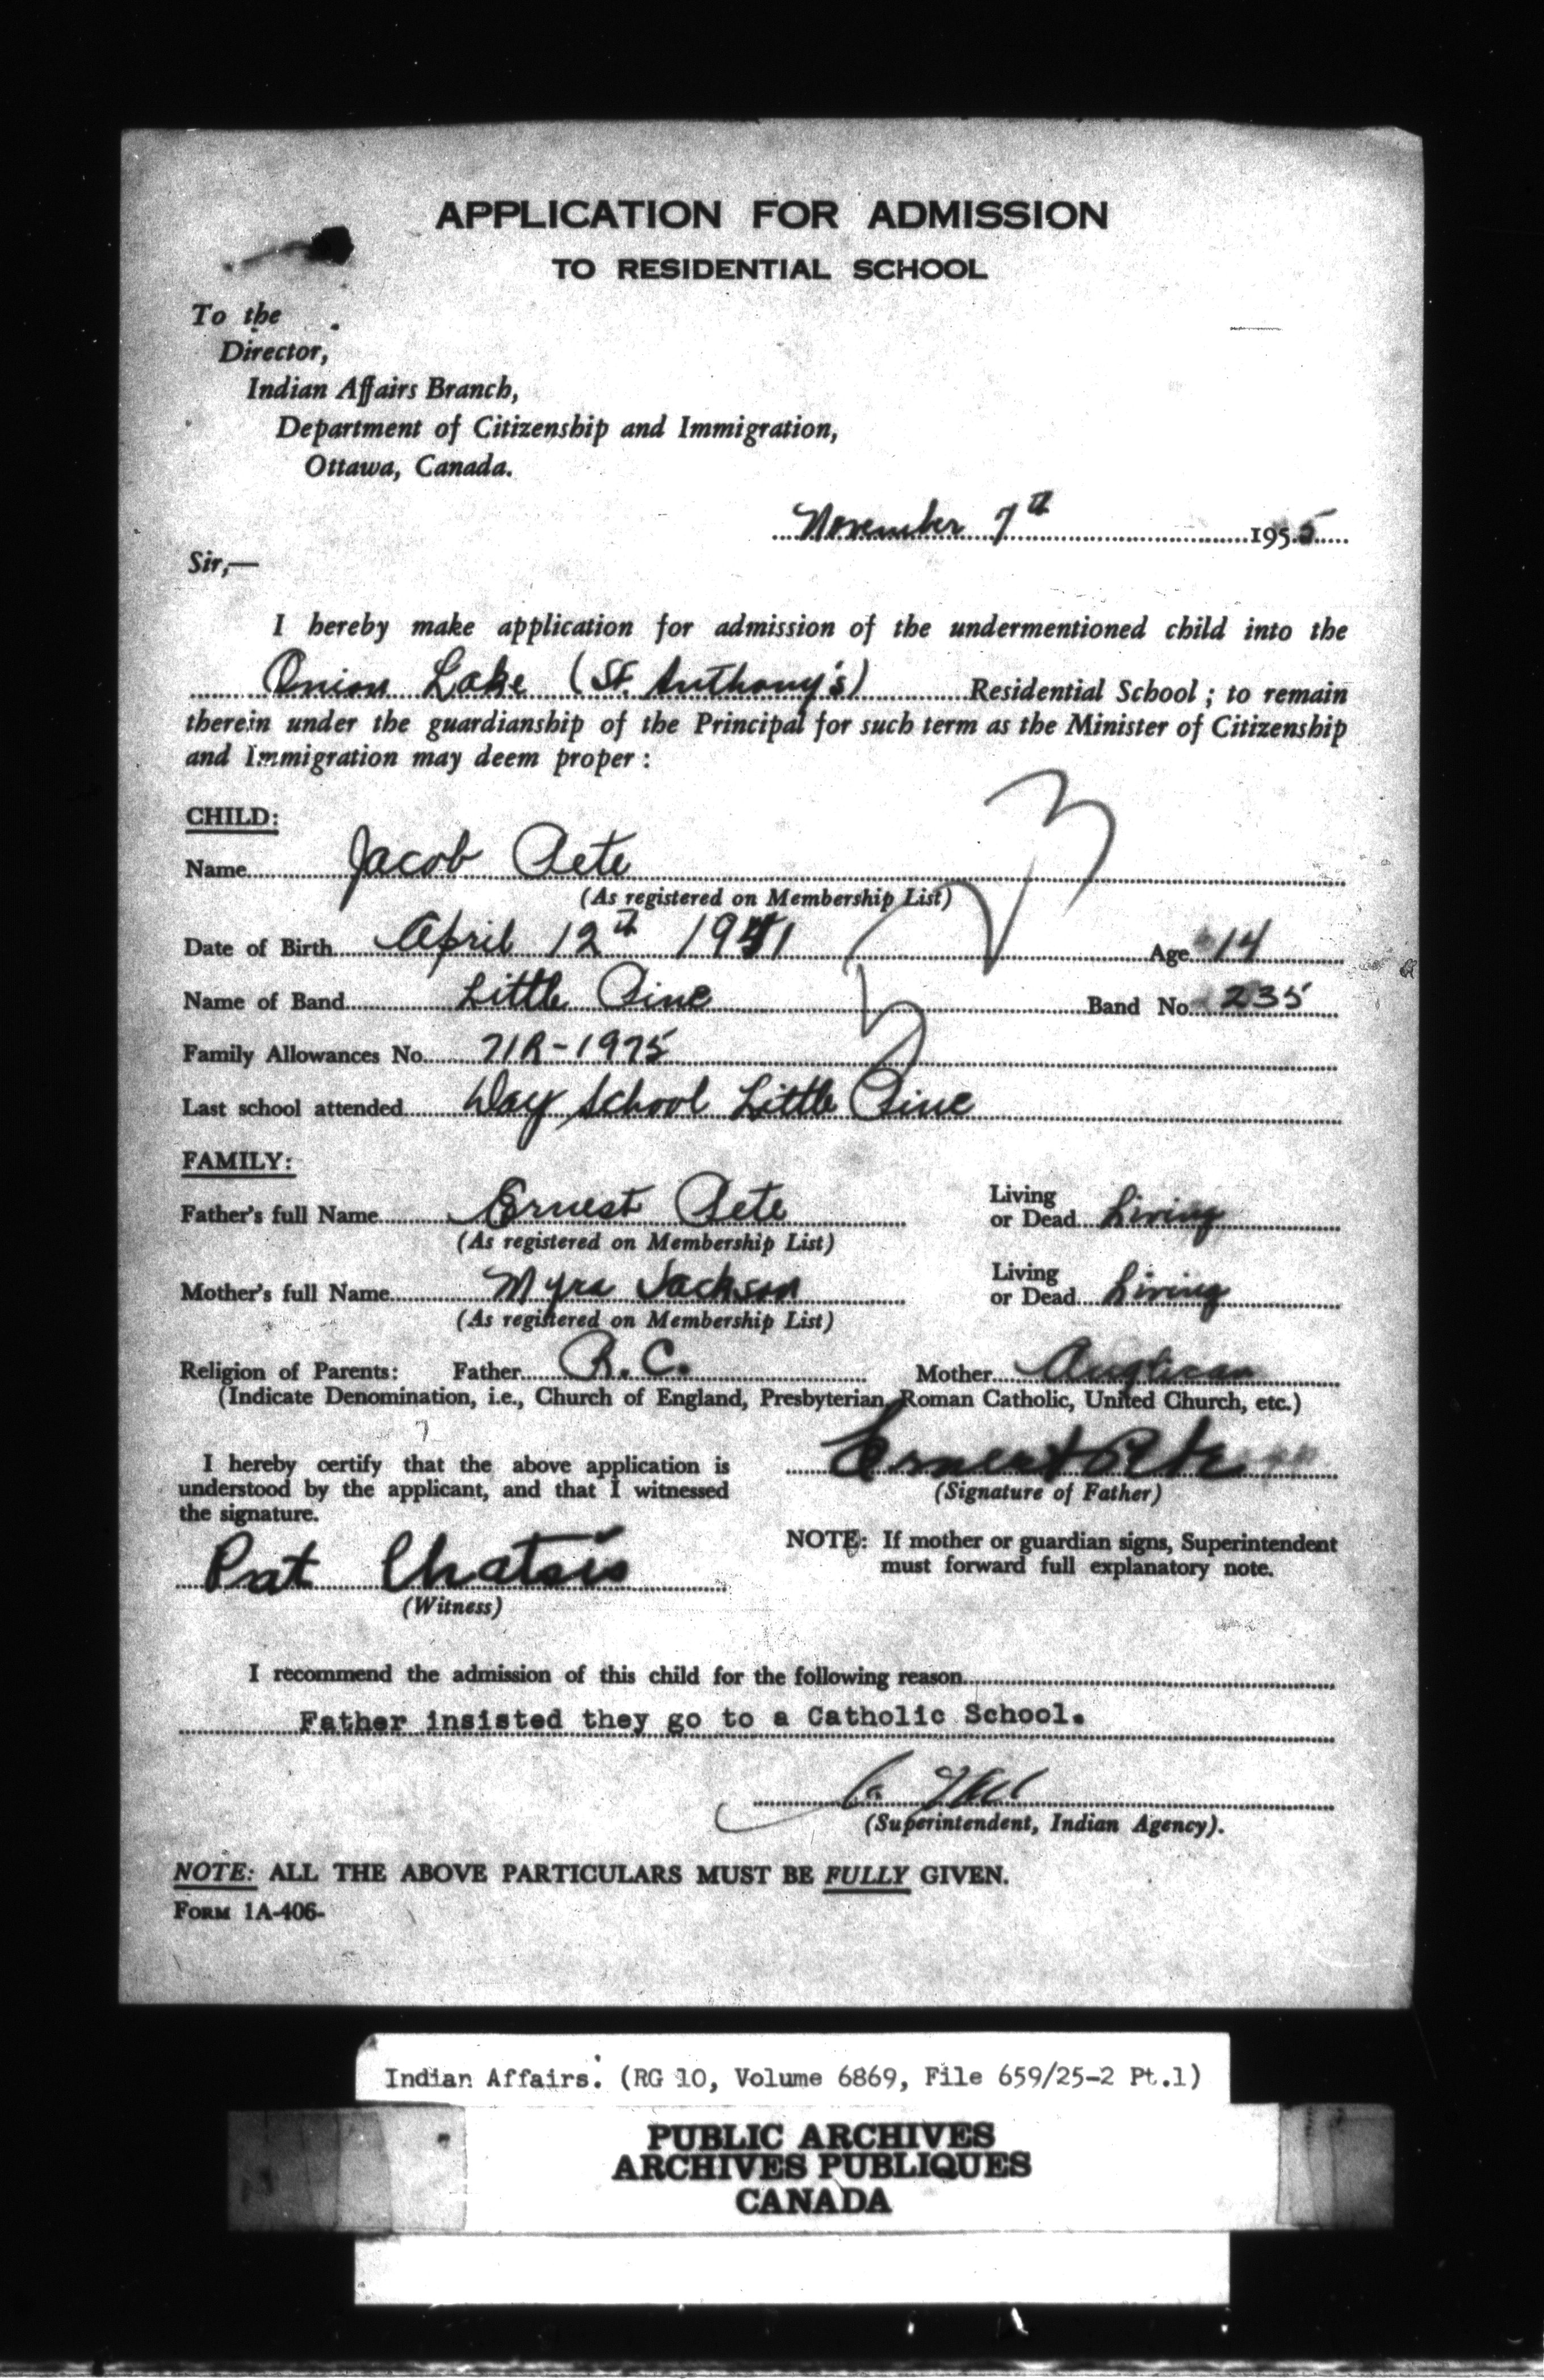 APPLICATION FOR ADMISSION
TO RESIDENTIAL SCHOOL
To the
Director,
Indian Affairs Branch,
Department of Citizenship and Immigration,
Ottawa, Canada.
November 7th 1955
Sir,—
I hereby make application for admission of the undermentioned child into the
Onion Lake (St. Anthony's) Residential School; to remain
therein under the guardianship of the Principal for such term as the Minister of Citizenship
and Immigration may deem proper:
CHILD:
Name Jacob Pete
(As registered on Membership List)
Date of Birth April 12th 1941 Age 14
Name of Band Little Pine Band No. 235
Family Allowances No. 71R-1975
Last school attended Day School Little Pine
FAMILY:
Father's full Name Ernest Pete Living or Dead Living
(As registered on Membership List)
Mother's full Name Myra Jackson Living or Dead Living
(As registered on Membership List)
Religion of Parents: Father R.C. Mother Anglican
(Indicate Denomination, i.e., Church of England, Presbyterian, Roman Catholic, United Church, etc.)
I hereby certify that the above application is
understood by the applicant, and that I witnessed
the signature.
Ernest Pete
(Signature of Father)
Pat Chatsis
(Witness)
NOTE: If mother or guardian signs, Superintendent
must forward full explanatory note.
I recommend the admission of this child for the following reason
Father insisted they go to a Catholic School.
(Superintendent, Indian Agency).
NOTE: ALL THE ABOVE PARTICULARS MUST BE FULLY GIVEN.
FORM 1A-406-
Indian Affairs. (RG 10, Volume 6869, File 659/25-2 Pt.1)
PUBLIC ARCHIVES
ARCHIVES PUBLIQUES
CANADA